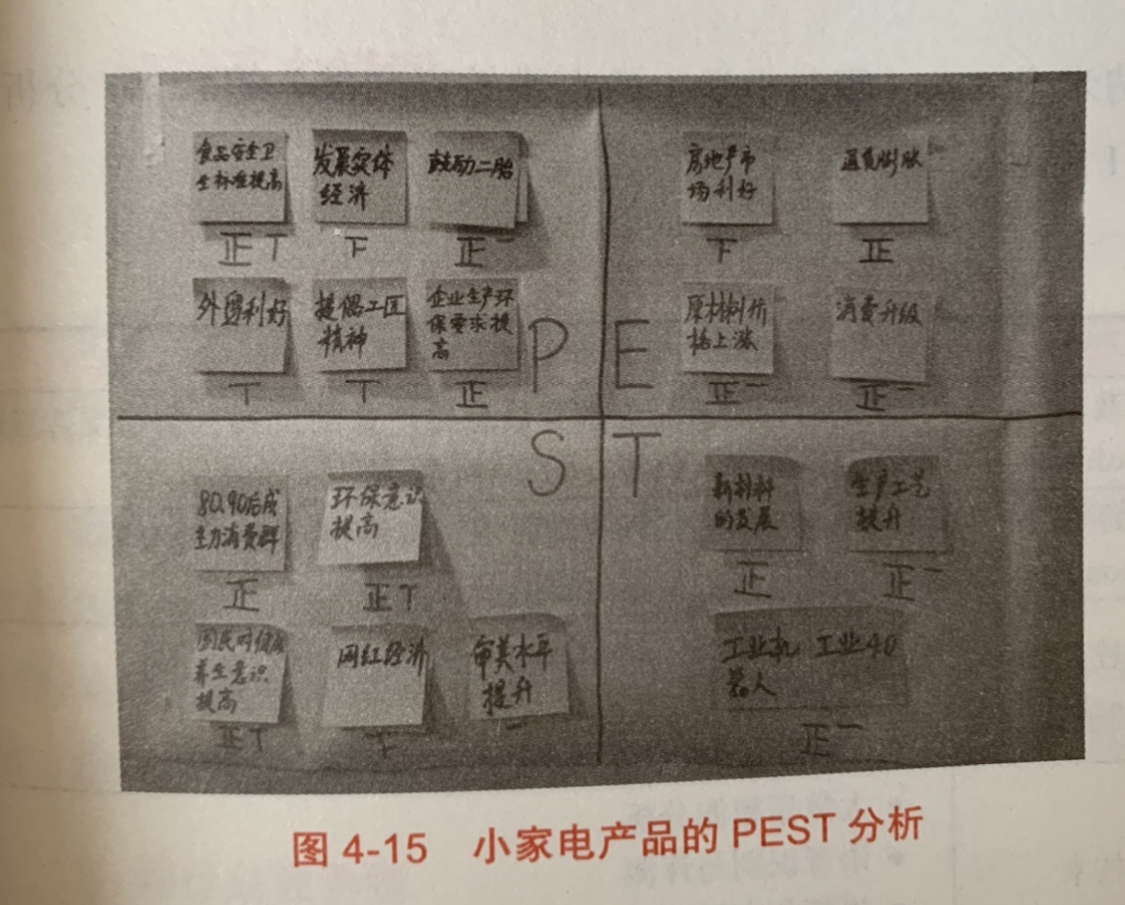 食品安全卫
生标准提高
正丅
发展实体
经济
下
鼓励二胎
正一
外贸利好
丅
提倡工匠
精神
丅
企业生产环
保要求提
高
正
P
房地产市
场利好
下
通货膨胀
正
原材料价
格上涨
正一
消费升级
正一
E
S
80.90后成
主力消费群
正
环保意识
提高
正丅
国民对健康
养生意识
提高
正丅
网红经济
下
审美水平
提升
一
T
新材料
的发展
正
生产工艺
提升
正一
工业机 工业4.0
器人
正一
图 4-15 小家电产品的 PEST 分析